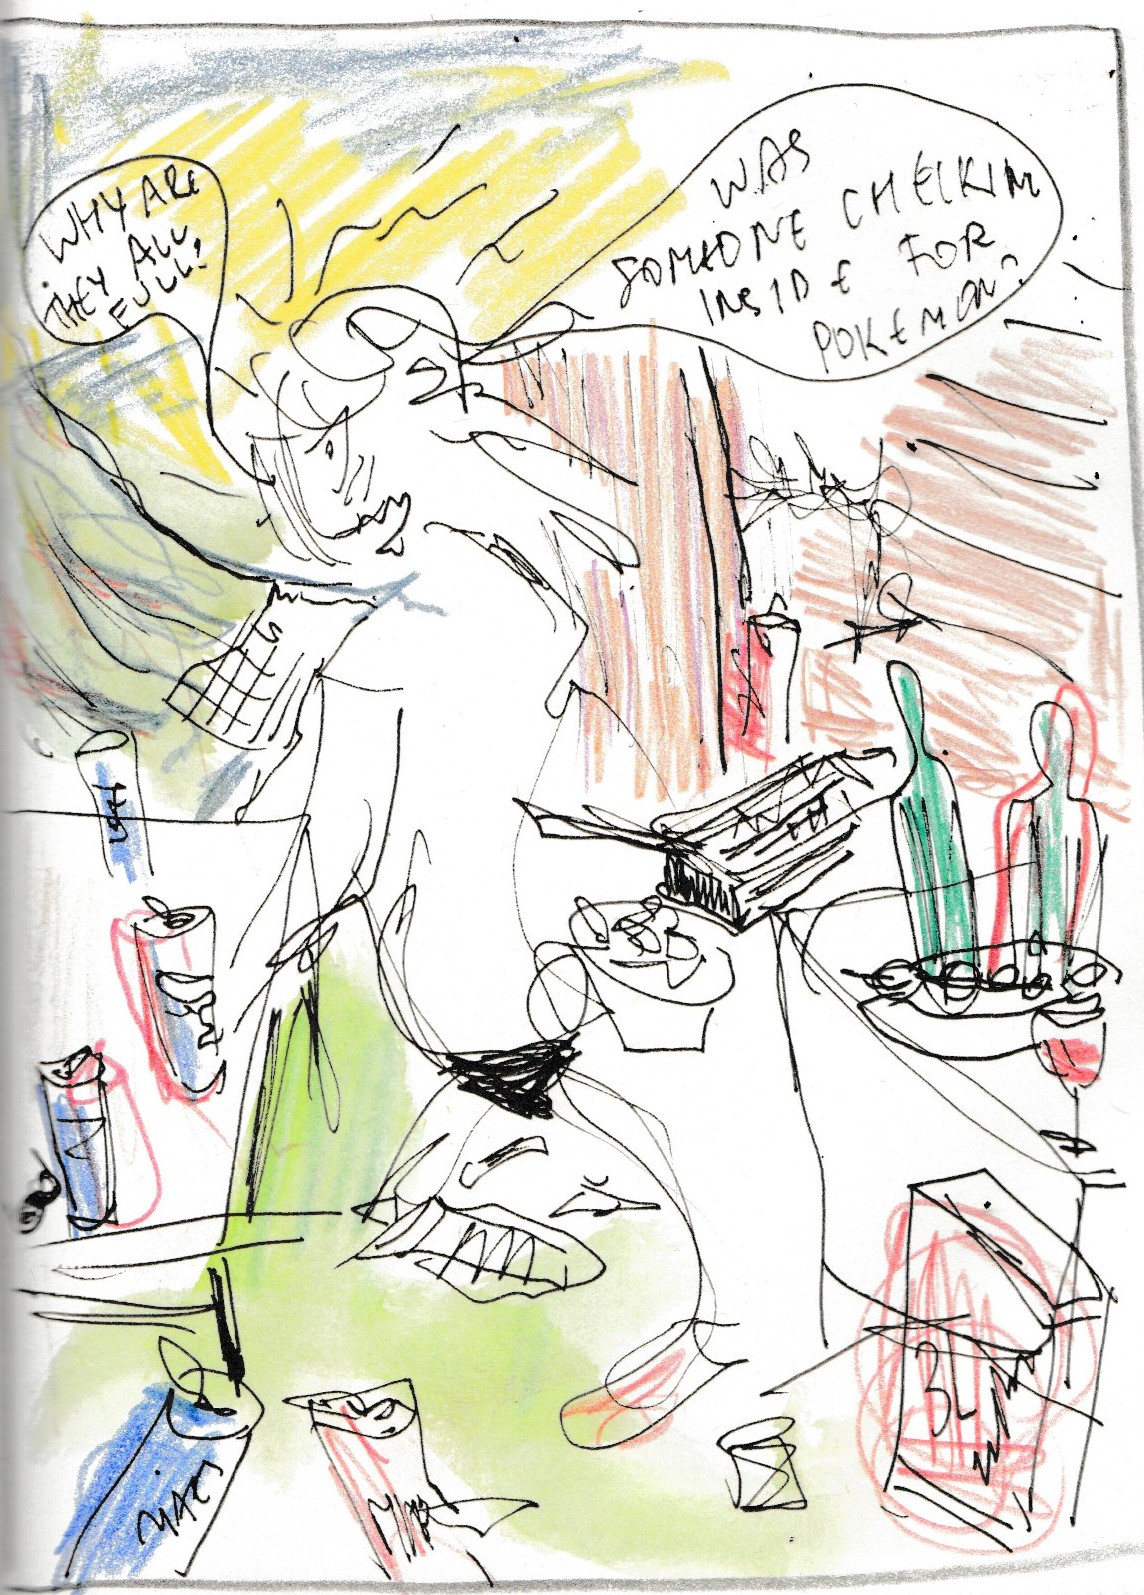 WHY ARE
THEY ALL
FULL?
WAS
SOMEONE CHELKIM
INSIDE FOR
POKEMON?
3L